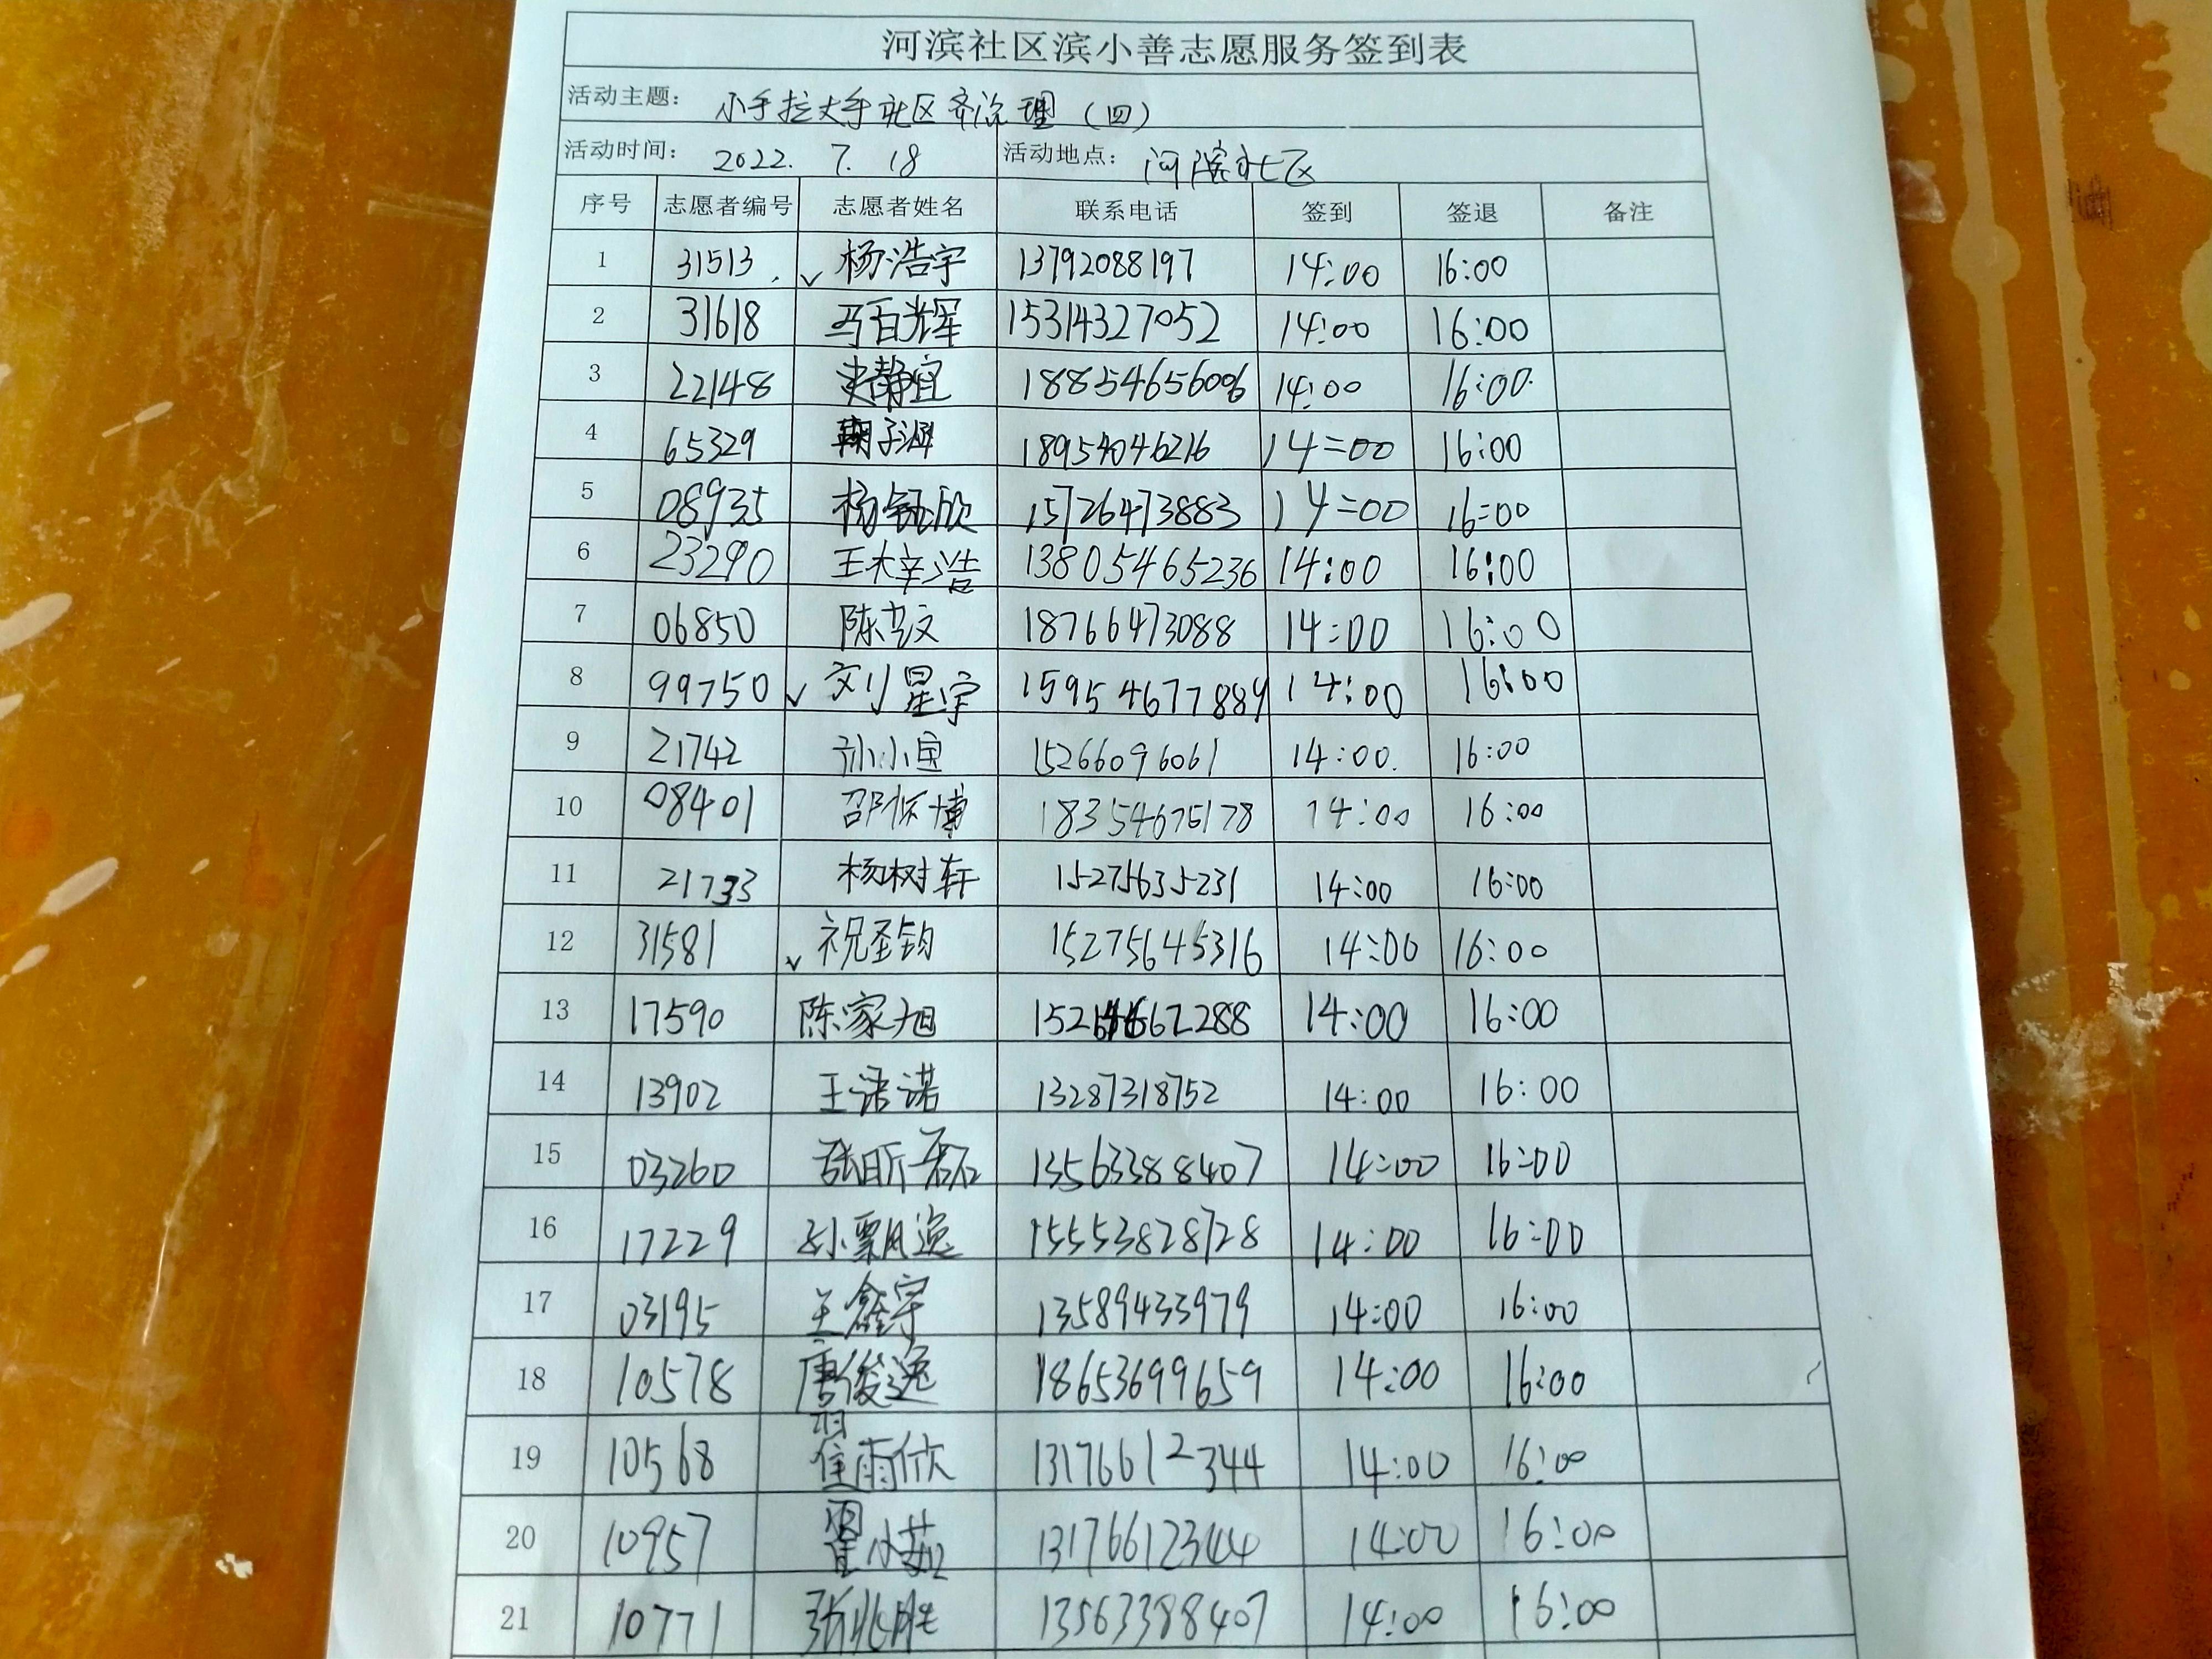 河滨社区滨小善志愿服务签到表
活动主题： 小手拉大手社区齐治理（四）
活动时间： 2022. 7. 18 活动地点： 河滨社区
序号 志愿者编号 志愿者姓名 联系电话 签到 签退 备注
1 31513. √ 杨浩宇 13792088197 14:00 16:00
2 31618 马百辉 15314327052 14:00 16:00
3 22148 史静宜 18854656006 14:00 16:00
4 65329 子涵 18954046216 14:00 16:00
5 08935 杨钰欣 15726473883 14:00 16:00
6 23290 王梓浩 13805465236 14:00 16:00
7 06850 陈文 18766473088 14:00 16:00
8 99750 √ 刘星宇 15954677889 14:00 16:00
9 21742 孙小宝 15266096061 14:00 16:00
10 08401 邵怀博 18354675178 14:00 16:00
11 21733 杨树轩 15275635231 14:00 16:00
12 31581 √ 祝圣钧 15275645316 14:00 16:00
13 17590 陈家旭 14:00 16:00
14 13902 王诺 13287318752 14:00 16:00
15 03260 张昕磊 13563388407 14:00 16:00
16 17229 孙飘逸 15553828728 14:00 16:00
17 03195 王鑫宇 13589433979 14:00 16:00
18 10578 唐俊逸 18653699659 14:00 16:00
19 10568 翟雨欣 13176612344 14:00 16:00
20 10957 翟小茹 13176612344 14:00 16:00
21 10771 张兆胜 13563388407 14:00 16:00